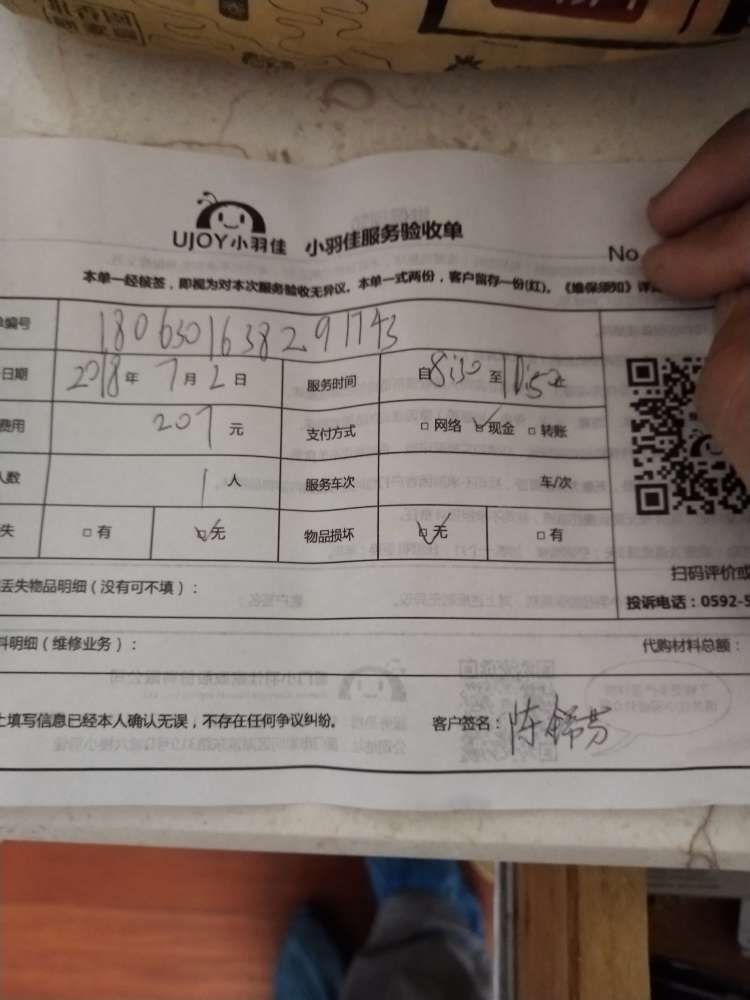 UJOY小羽佳 小羽佳服务验收单
No
本单一经候签，即视为对本次服务验收无异议。本单一式两份，客户留存一份(红)。《维保须知》详
编号 1806301638291743
日期 2018年7月2日 服务时间 自8:30至
费用 207元 支付方式 □网络 ☑现金 □转账
人数 1人 服务车次 车/次
失 □有 ☑无 物品损坏 ☑无 □有
扫码评价或
丢失物品明细（没有可不填）： 投诉电话：0592-5
料明细（维修业务）： 代购材料总额：
上填写信息已经本人确认无误，不存在任何争议纠纷。 客户签名：陈